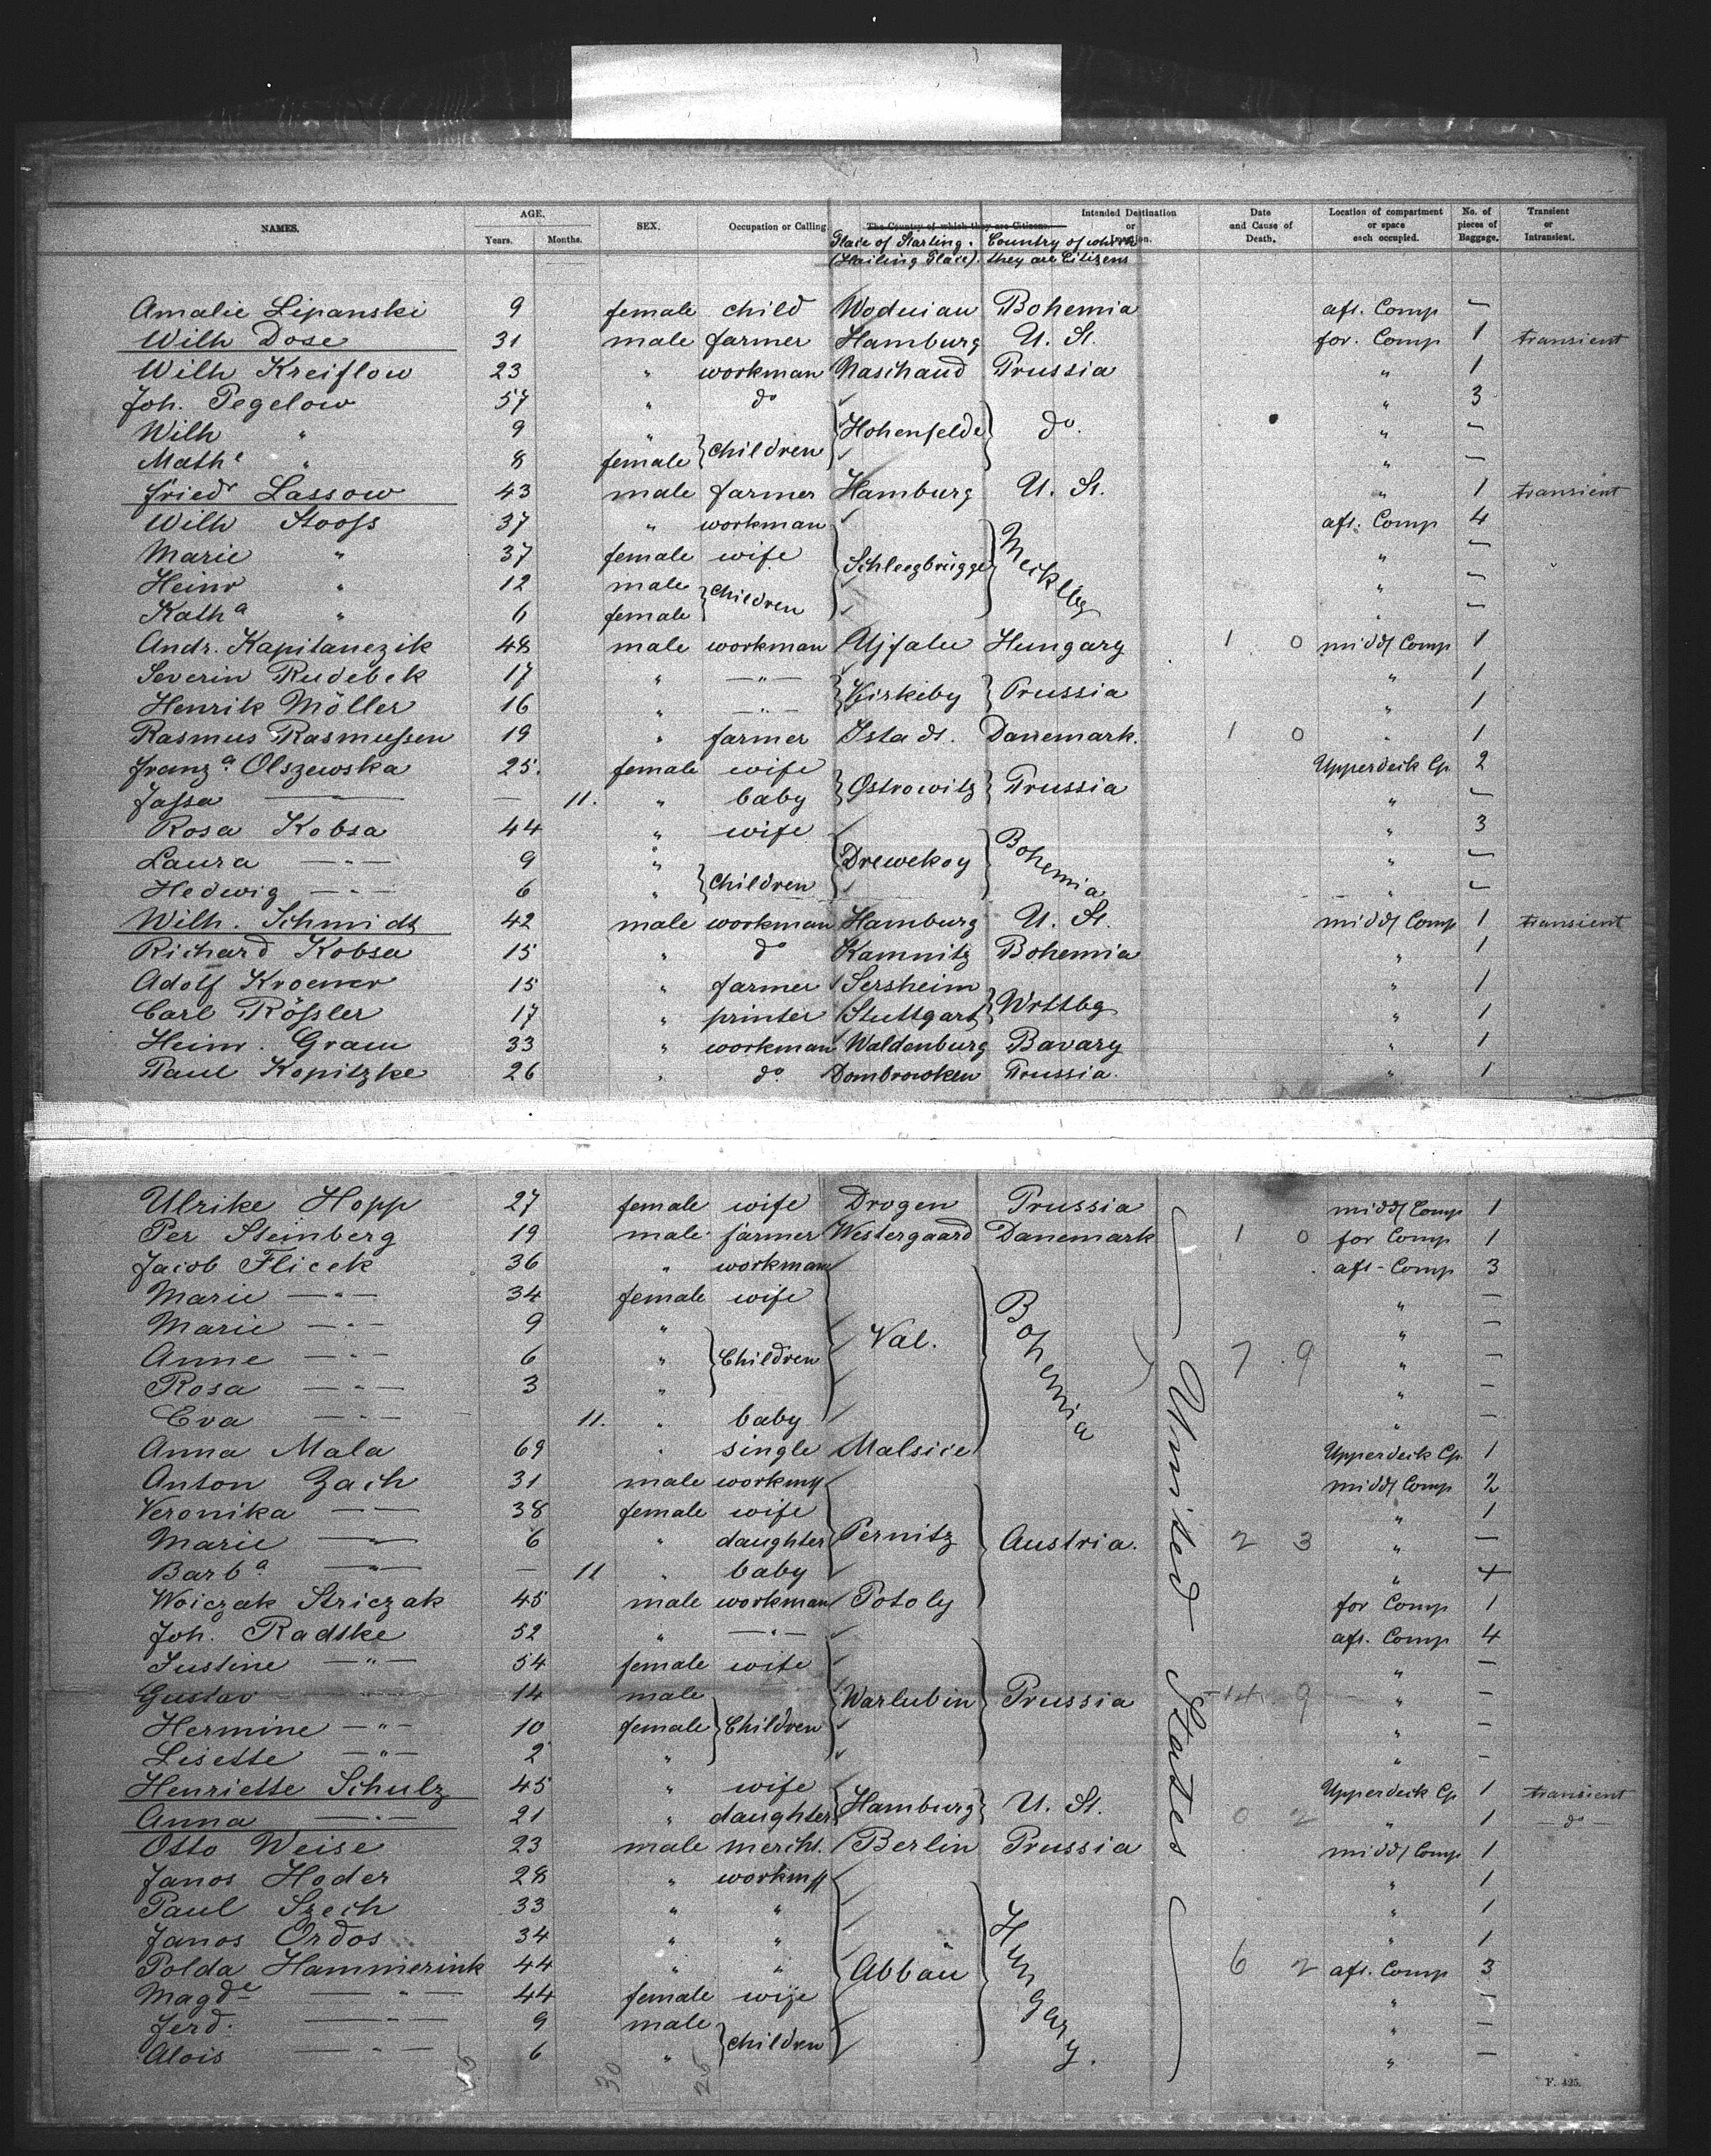 NAMES. AGE. Years. Months. SEX. Occupation or Calling The Country of which they are Citizens. Intended Destination or Location. Date and Cause of Death. Location of compartment or space each occupied. No. of pieces of Baggage. Transient or Intransient.
Place of Starting. (Hailing Place). Country of which they are Citizens
Amalie Lipanski 9 female child Woduian Bohemia aft. Comp –
Wilh Dose 31 male farmer Hamburg U. St. for. Comp 1 transient
Wilh Kreiflow 23 " workman Naschaud Prussia " 1
Joh. Pegelow 57 " do " 3
Wilh " 9 " Hohenfelde do. " –
Mathe " 8 female children " –
Friedr Lassow 43 male farmer Hamburg U. St. " 1 transient
Wilh Stooss 37 " workman aft. Comp 4
Marie " 37 female wife Schleegbrügge Mecklbg " –
Heinr " 12 male children " –
Katha " 6 female " –
Andr. Kapitanezik 48 male workman Ujfalu Hungary 1 0 midd/ Comp 1
Severin Rudebek 17 " —"— " 1
Henrik Möller 16 " —"— Kirkeby Prussia " 1
Rasmus Rasmussen 19 " farmer Istads. Danemark. 1 0 " 1
Franza Olszewska 25. female wife Upperdeck Cp. 2
Jassa — — 11. " baby Ostrowitz Prussia " –
Rosa Kobsa 44 " wife " 3
Laura —"— 9 " Drewekoy Bohemia " –
Hedwig —"— 6 " children " –
Wilh. Schmidt 42 male workman Hamburg U. St. midd/ Comp 1 transient
Richard Kobsa 15 " do Kamnitz Bohemia " 1
Adolf Kroener 15 " farmer Sersheim " 1
Carl Rössler 17 " printer Stuttgart Wrttbg " 1
Heinr. Gram 33 " workman Waldenburg Bavary " 1
Paul Kopitzke 26 " do. Dombrowken Prussia. " 1
Ulrike Hopp 27 female wife Drogen Prussia midd/ Comp 1
Per Steinberg 19 male farmer Westergaard Danemark 1 0 for Comp 1
Jacob Flicek 36 " workman aft-Comp 3
Marie —"— 34 female wife " –
Marie —"— 9 " " –
Anne —"— 6 " Children Val. Bohemia 7 9 " –
Rosa —"— 3 " " –
Eva —"— 11. " baby " –
Anna Mala 69 " single Malsice Upperdeck Cp. 1
Anton Zach 31 male workm midd/ Comp 2
Veronika — 38 female wife " 1
Marie — 6 " daughter Pernitz Austria. 2 3 " –
Barba. — — 11 " baby "
Woiczak Striczak 45 male workman Potoly for Comp 1
Joh. Radtke 52 " —"— aft. Comp 4
Justine —"— 54 female wife " –
Gustav —"— 14 male Warlubin Prussia 9 " –
Hermine —"— 10 female Children " –
Lisette —"— 2 " " –
Henriette Schulz 45 " wife Upperdeck Cp 1 transient
Anna —"— 21 " daughter Hamburg U. St. 0 2 " 1 —do—
Otto Weise 23 male mercht. Berlin Prussia midd/ Comp 1
Janos Hoder 28 " workm " 1
Paul Szech 33 " " " 1
Janos Ordos 34 " " " 1
Polda Hammerink 44 " " Abbau Hungary. 6 2 aft. Comp 3
Magde —"— 44 female wife " –
Ferd. —"— 9 male " –
Alois —"— 6 " children " –
United States
30 26
F. 425.